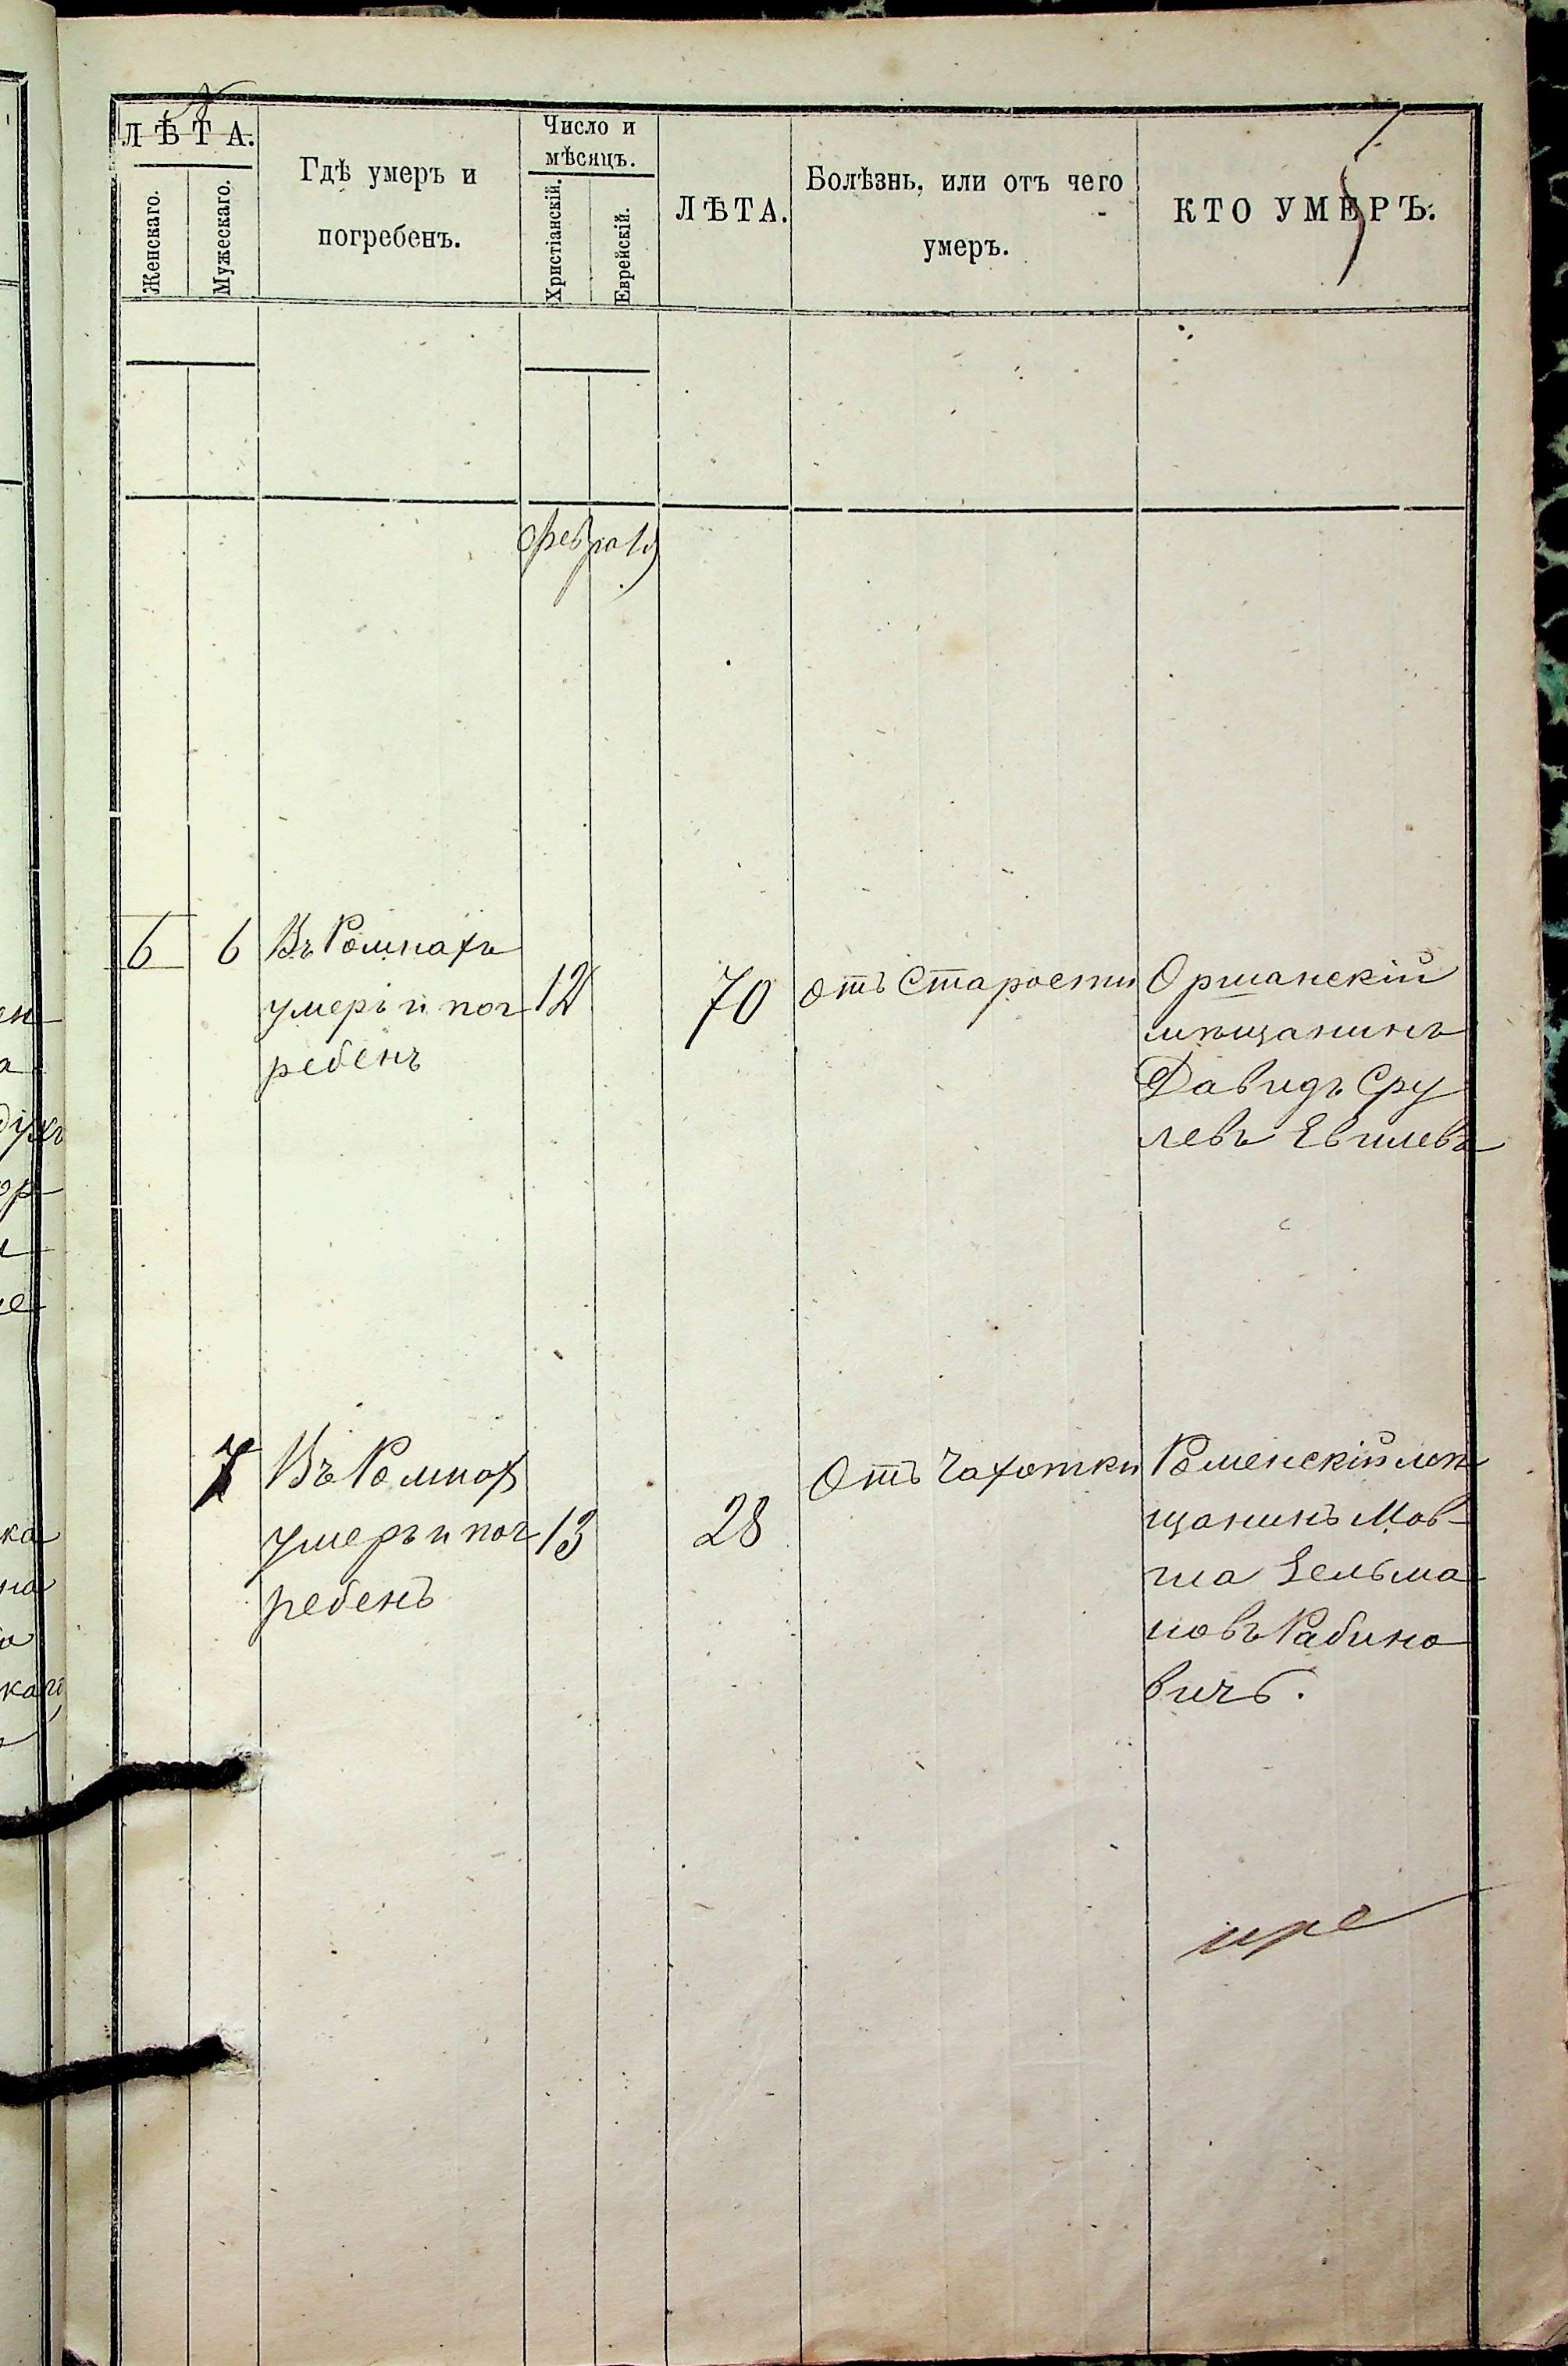 ЛѢТА.
Женскаго.
Мужескаго.
Гдѣ умеръ и
погребенъ.
Число и
мѣсяцъ.
Христіанскій.
Еврейскій.
ЛѢТА.
Болѣзнь, или отъ чего
умеръ.
КТО УМЕРЪ.
февраль
6
6
Въ Ромнахъ
умеръ и пог
ребенъ
12
70
отъ Старости
Оршанскій
мѣщанинъ
Давидъ Сру
левъ Евилевъ
7
Въ Ромнах
умеръ и пог
ребенъ
13
28
Отъ Чахотки
Роменскій мѣ
щанинъ Мов-
ша Зельма
новъ Рабино
вичъ.